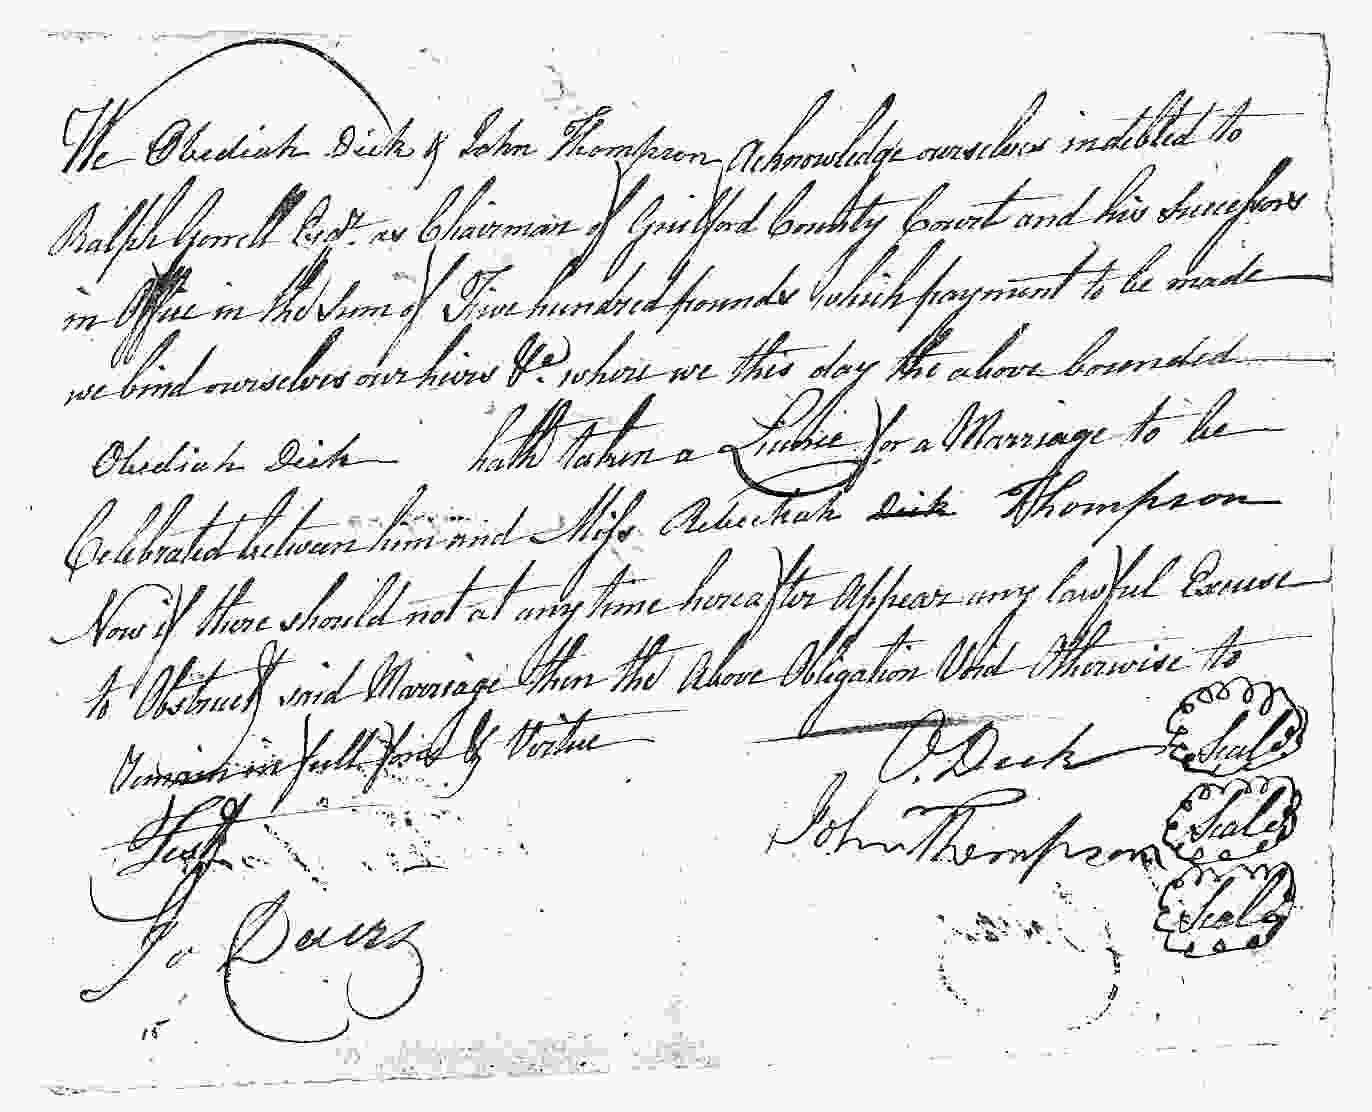 We Obediah Dick & John Thompson Acknowledge ourselves indebted to
Ralph Gorrell Esqr. as Chairman of Guilford County Court and his Successors
in Office in the Sum of Five hundred pounds which payment to be made
we bind ourselves our heirs &c. where we this day the above bounded
Obediah Dick hath taken a Licence for a Marriage to be
Celebrated between him and Miss Rebeckah Dick Thompson
Now if there should not at any time hereafter Appear any lawful Excuse
to Obstruct said Marriage then the Above Obligation Void Otherwise to
remain in full force & Virtue
O. Dick Seal
Test
John Thompson Seal
Seal
Jo
15